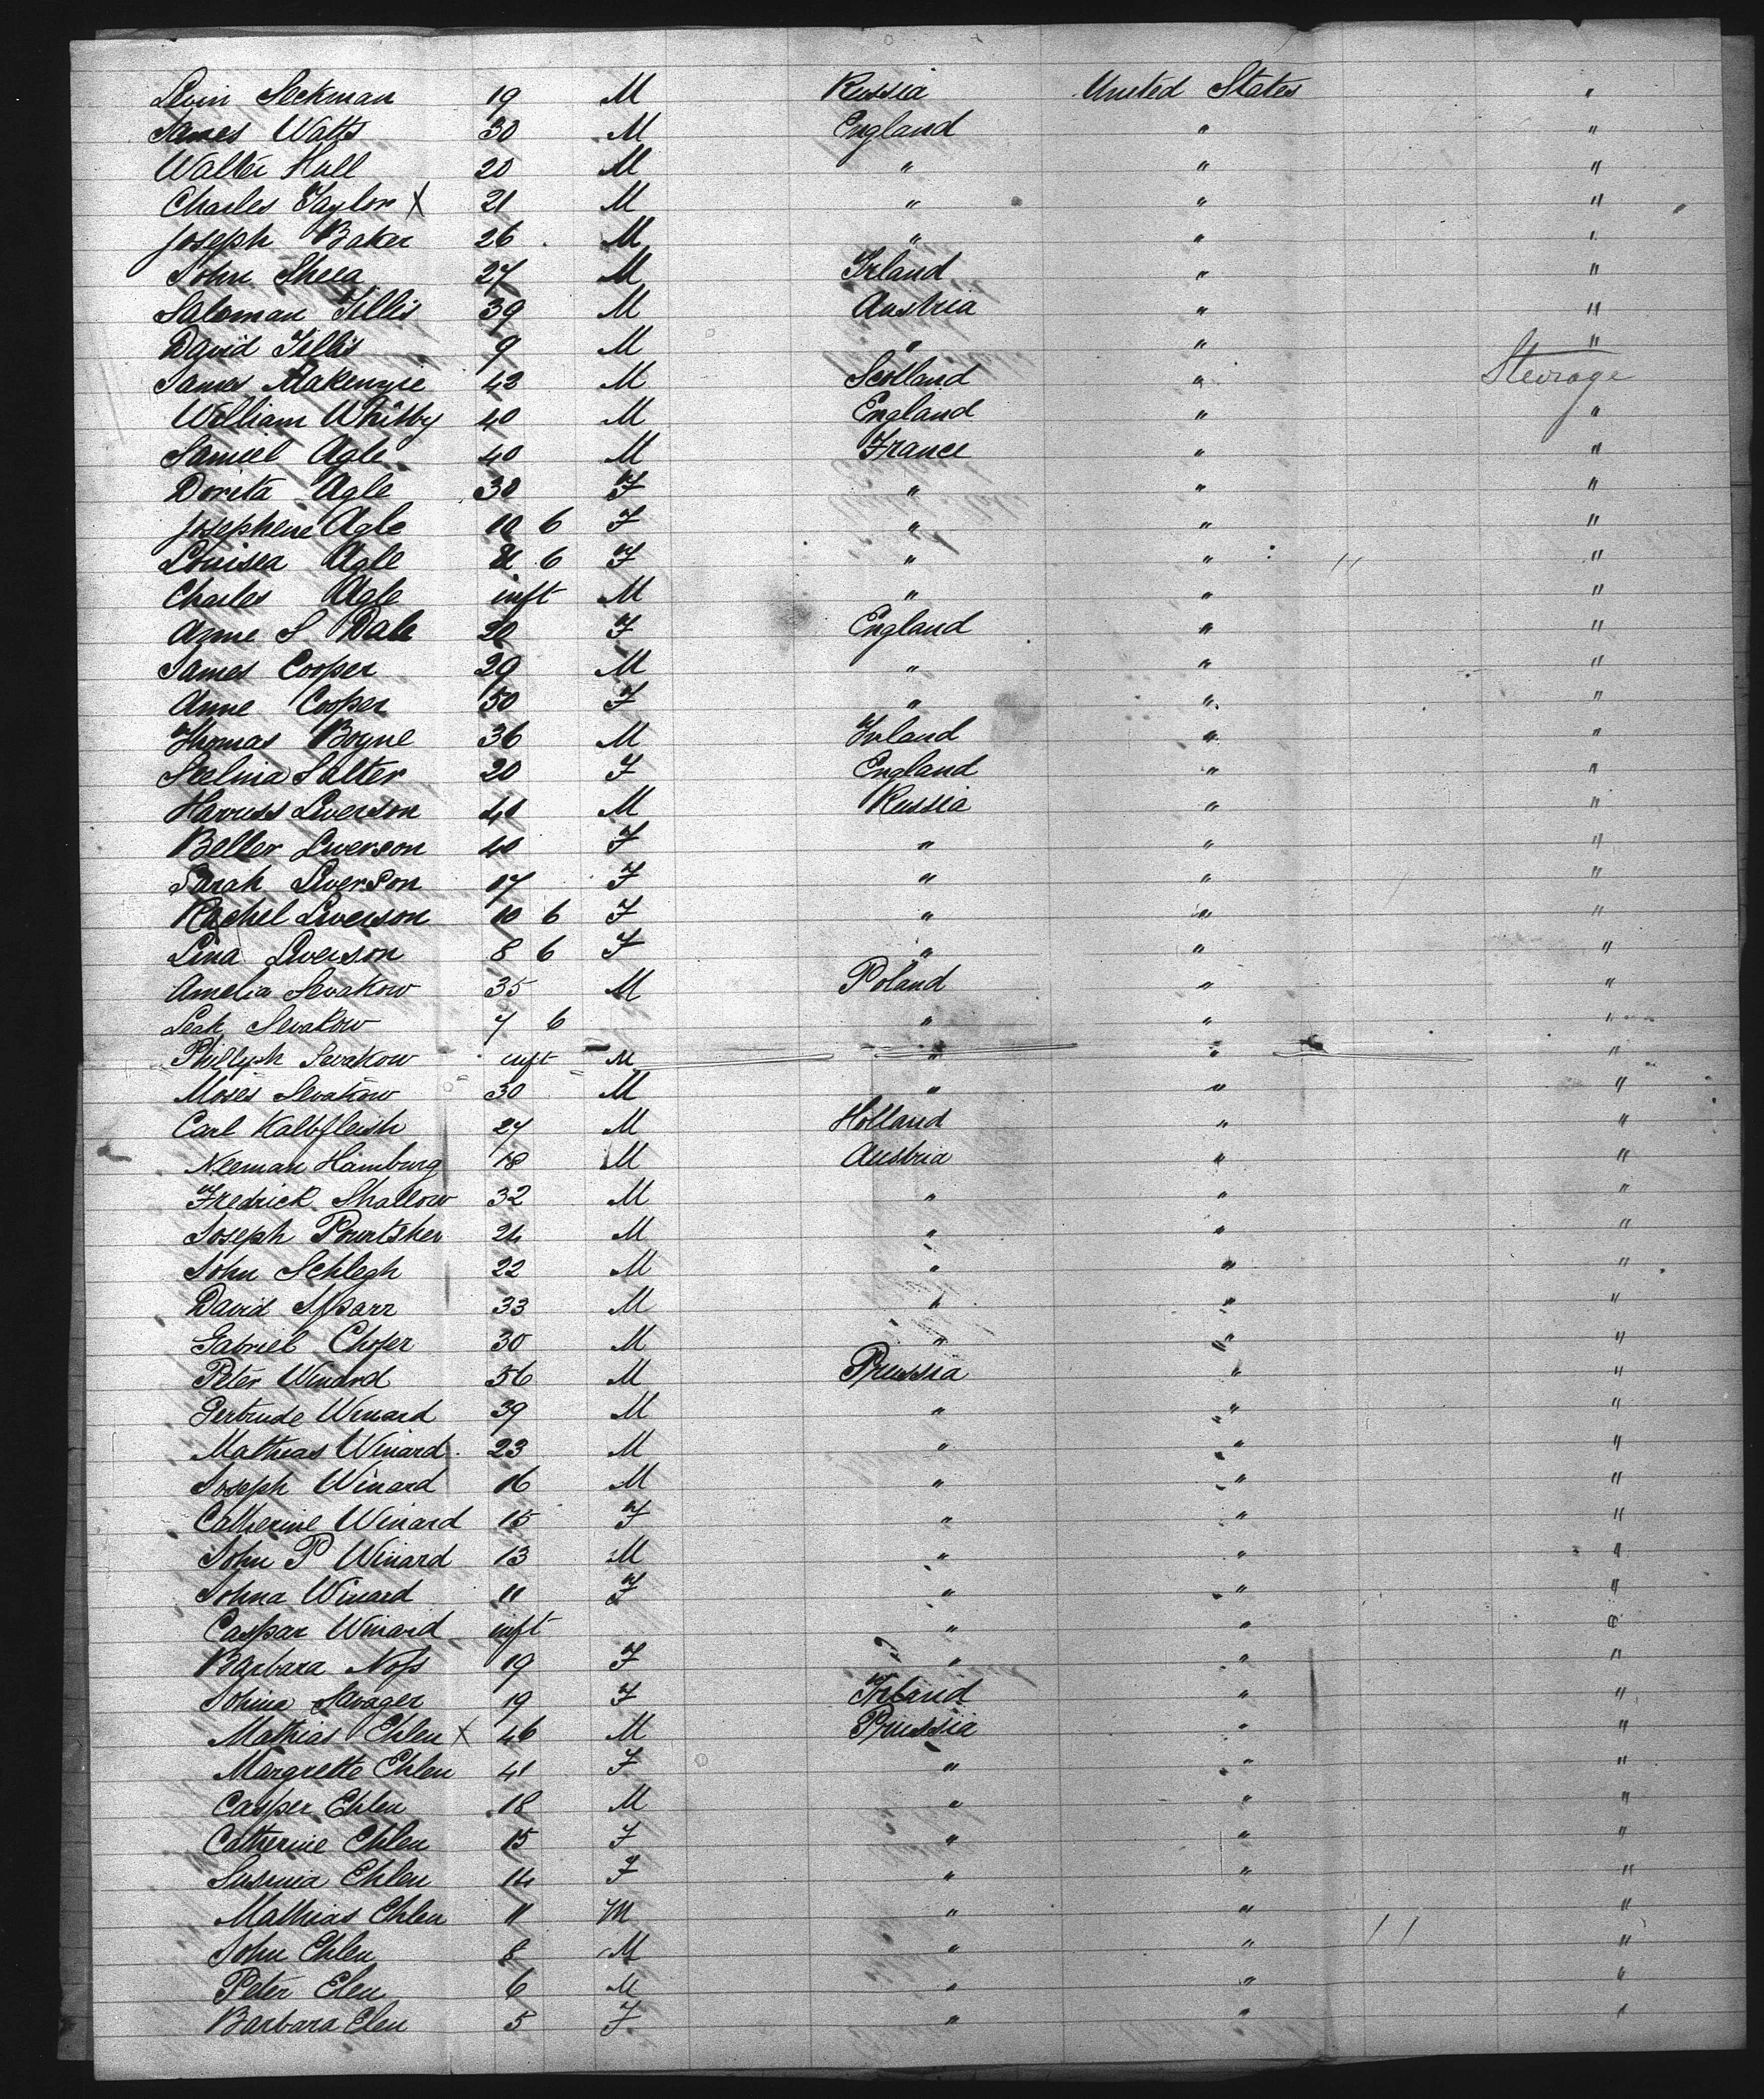 Levin Seckman 19 M Russia United States "
James Watts 30 M England " "
Walter Hull 20 M " " "
Charles Taylor X 21 M " " "
Joseph Baker 26 M " " "
John Sheea 27 M Irland " "
Saloman Tillis 39 M Austria " "
David Tillis 9 M " " "
James Makenzie 42 M Scotland " Steirage
William Whitby 40 M England " "
Samiel Agle 40 M France " "
Dorita Agle 30 F " " "
Josephene Agle 10 6 F " " "
Louisea Agle 8 6 F " " "
Charles Agle inft M " " "
Anne S Dale 20 F England " "
James Cooper 29 M " " "
Anne Cooper 50 F " " "
Thomas Boyne 36 M Irland " "
Seelina Salter 20 F England " "
Harriss Lwerson 40 M Russia " "
Beller Lwerson 40 F " " "
Sarah Lwerson 17 F " " "
Rachel Lwerson 10 6 F " " "
Lina Lwerson 8 6 F " " "
Amelia Sevakow 35 M Poland " "
Leah Sevakow 7 6 " " "
Philliph Sevakow inft M " " "
Moses Sevakow 30 M " " "
Carl Kalbfleish 27 M Holland " "
Neeman Hamburg 18 M Austria " "
Fredrick Shallow 32 M " " "
Joseph Pourtsher 24 M " " "
John Schlegh 22 M " " "
David Sparr 33 M " " "
Gabriel Choper 30 M " " "
Peter Winard 56 M Prussia " "
Gertrude Winard 39 M " " "
Mathias Winard 23 M " " "
Joseph Winard 16 M " " "
Catherine Winard 15 F " " "
John P Winard 13 M " " "
Johna Winard 11 F " " "
Caspar Winard inft " " "
Barbara Nofs 19 F " " "
Johina Savager 19 F Irland " "
Mathias Ehlen X 46 M Prussia " "
Margrette Ehlen 41 F " " "
Casper Ehlen 18 M " " "
Catherine Ehlen 15 F " " "
Susinia Ehlen 14 F " " "
Mathias Ehlen 11 M " " "
John Ehlen 8 M " " "
Peter Elen 6 M " " "
Barbara Elen 5 F " " "